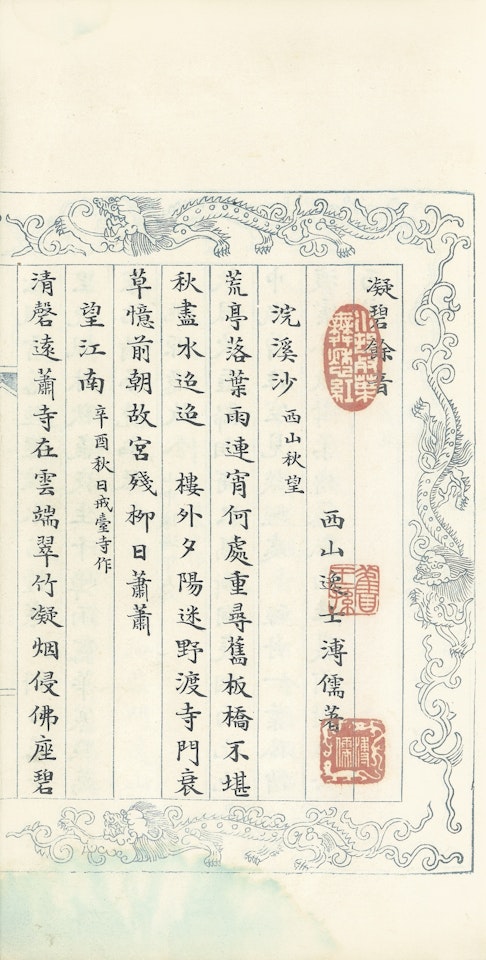 凝碧餘音
西山逸士溥儒著
浣溪沙 西山秋望
荒亭落葉雨連宵何處重尋舊板橋不堪
秋盡水迢迢 樓外夕陽迷野渡寺門衰
草憶前朝故宮殘柳日蕭蕭
望江南 辛酉秋日戒臺寺作
清磬遠蕭寺在雲端翠竹凝烟侵佛座碧
溥儒